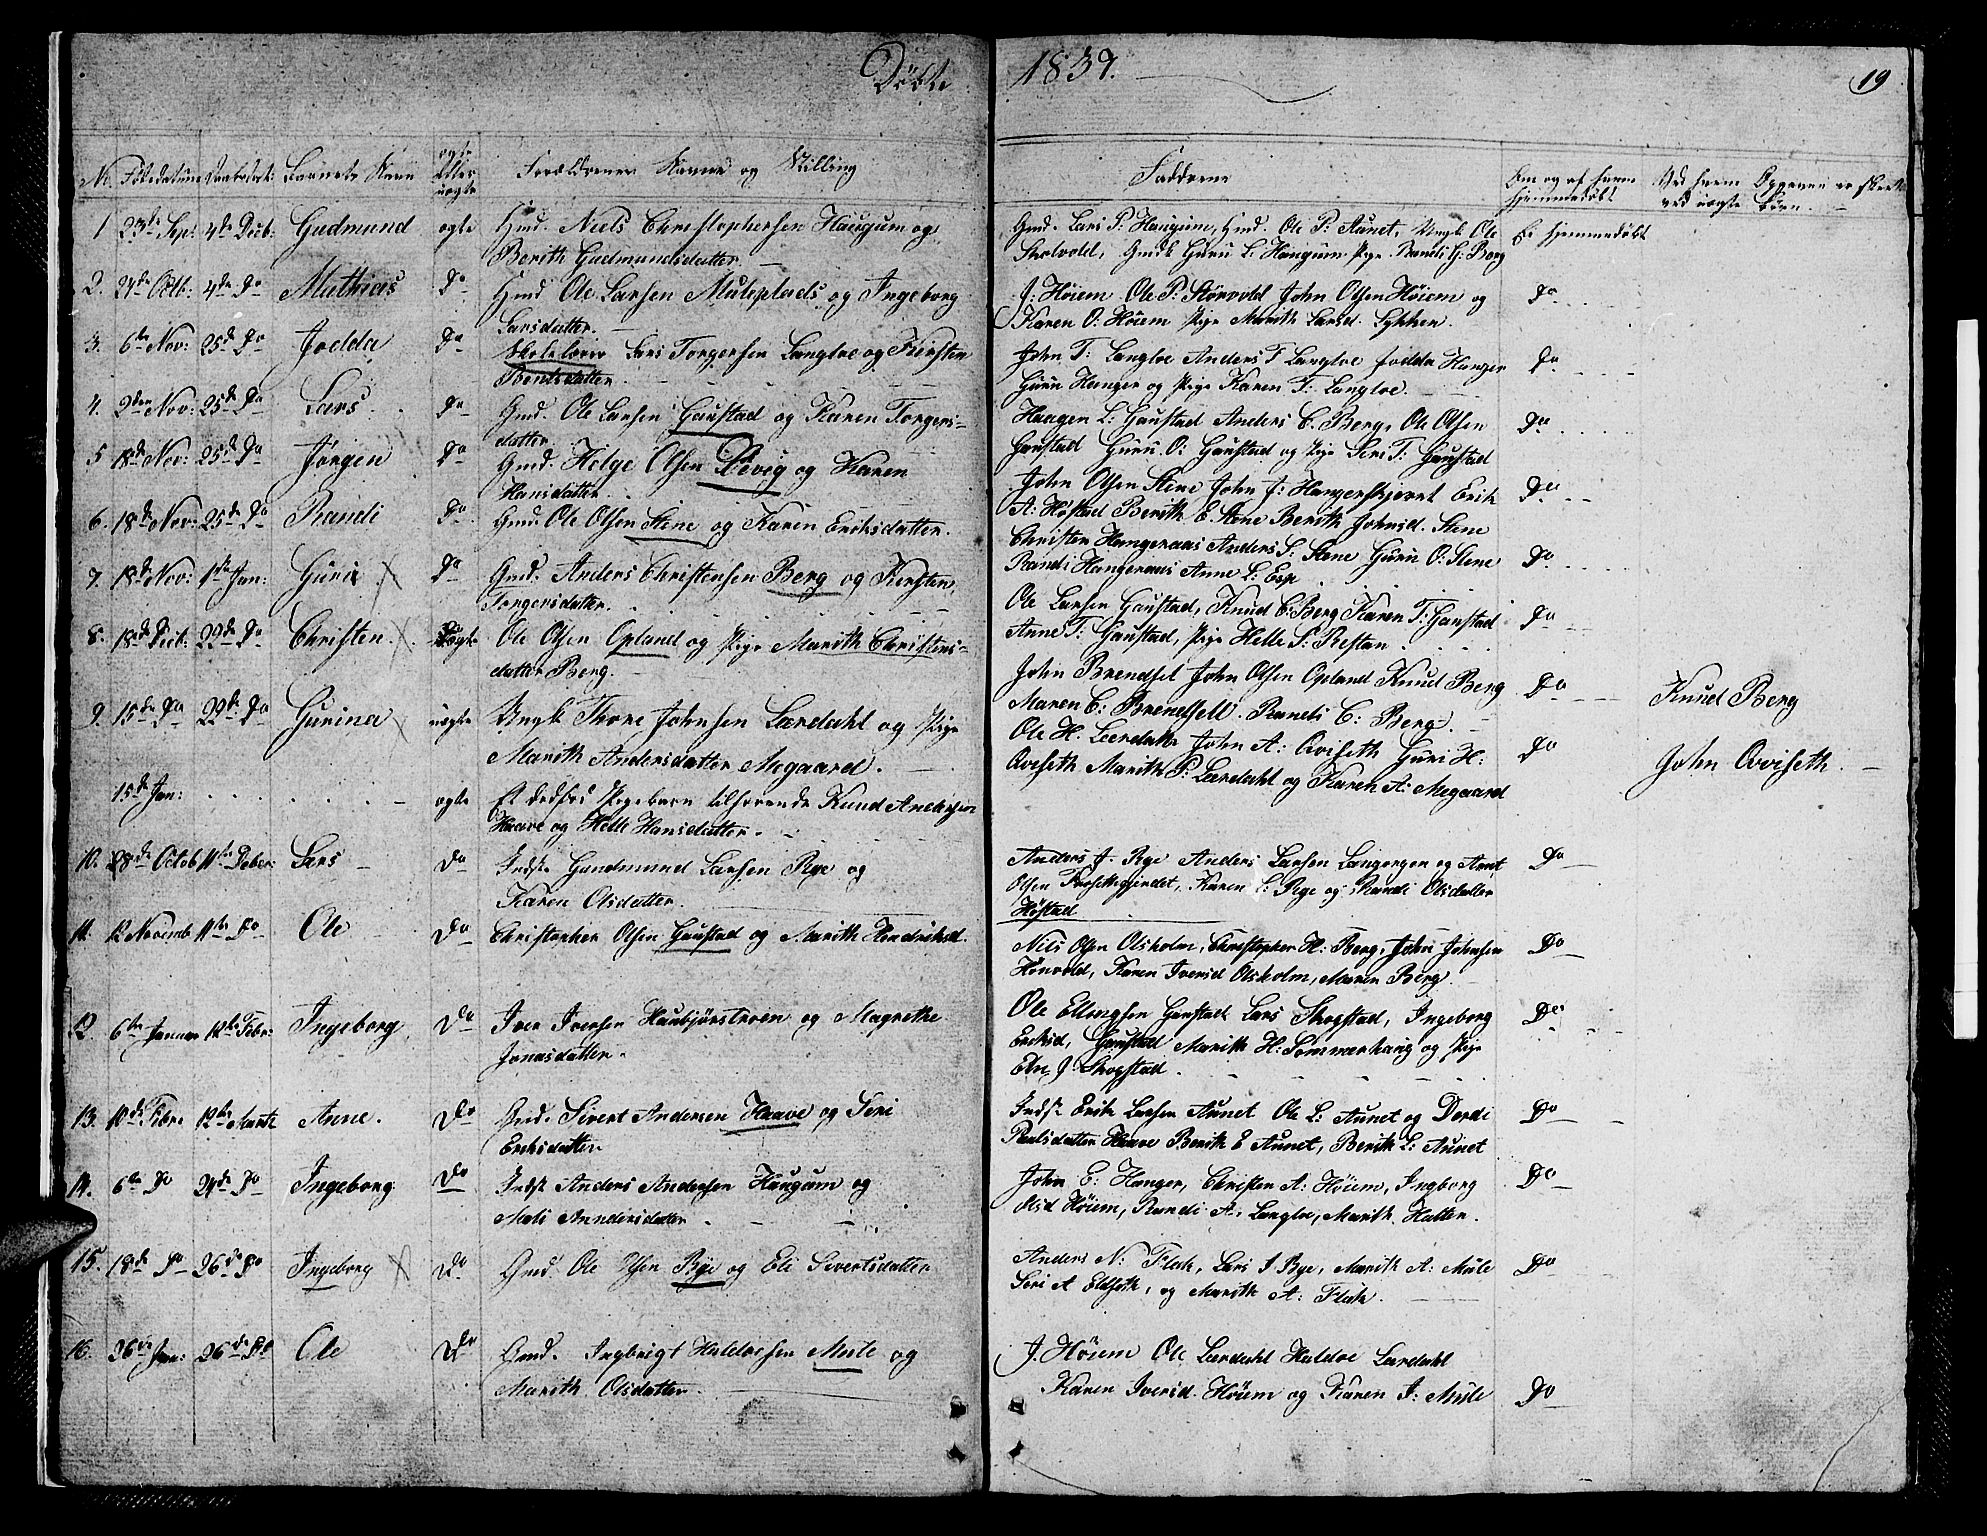 Döbte 1839.
19
No Födedatum Daabsdat: Barnets Navn ægte eller uægte Forældrenes Navne og Stilling
Fadderne
Om og af hvem hjemmedöbt
1 23de Sep: 4de Decb: Gudmund ægte Gmd. Niels Christophersen Haugum og
Berith Gudmundsdatter.
Gmd. Lars P. Haugum, Gmd. Ole P: Aunet, Ungk Ole
Guru L: Haugum Pige Randi G: Berg
Ei hjemmedöbt
2. 24de Octb: 4de Do Mathias Do Gmd Ole Larsen Muleplads og Ingeborg
Larsdatter.
J: Höiem Ole P: Störvold John Olsen Höiem og
Karen O: Höiem Pige Marith Larsd. Lykken.
Do
3. 6te Nov: 25de Do Jodda Do Skolelærer Lars Torgersen Langloe og Kirsten
Bentsdatter.
John T: Langloe Anders T Langloe Jodda Hanger
Guru Hanger og Pige Karen T. Langloe.
Do
4. 9den Nov: 25de Do Lars Do Gmd. Ole Larsen Gaustad og Karen Torgers-
datter
Haagen L: Gaustad Anders C. Berg, Ole Olsen
Gaustad Guru O: Gaustad og Pige Seri T: Gaustad
Do
5 18de Nov: 25de Do Jörgen Do Gmd. Helge Olsen Devig og Karen
Hansdatter.
John Olsen Stene John J: Hangerskjernt Erik
A: Höstad Berith E. Stene Berith Johnsd. Stene
Do
6. 18de Nov: 25de Do Randi Do Gmd. Ole Olsen Stene og Karen Eriksdatter.
Christen Hangeraas Anders S: Stene Guru O: Stene
Randi Hangeraas Anne L: Esp
Do
7. 18de Nov: 1ste Jan: Guri X Do Gmd. Anders Christensen Berg og Kirsten
Torgersdatter.
Ole Larsen Gaustad, Knud C: Berg Karen T: Gaustad
Anne T: Gaustad, Pige Helle S: Restan
Do
8. 18de Dect: 22de Do Christen X uægte Ole Olsen Opland og Pige Marith Christens-
datter Berg.
John Brendsel John Olsen Opland Knud Berg
Maren C: Brendsell. Randi C: Berg.
Do Knud Berg
9. 15de Do 22de Do Gurina X uægte Ungk Thore Johnsen Lærdahl og Pige
Marith Andersdatter Megaard.
Ole H. Lærdahl John A: Qviseth Guri H:
Qviseth Marith P: Lærdahl og Karen A: Megaard
Do John Qviseth.
15de Jan: ægte Et dödfød Pigebarn tilhørende Knud Andersen
Haave og Helle Hansdatter.
10. 28de Octob 11te Feber: Lars Do Indst. Gundmund Larsen Rye og
Karen Olsdatter.
Anders J. Rye Anders Larsen Langorgen og Arnt
Olsen, Karen L: Rye og Randi Olsdatter
Höstad
Do
11. 12 Novemb 11te Do Ole Do Christopher Olsen Gaustad og Marith Hendriksd.
Nils Olsen Olsholm, Christopher H: Berg, John Johnsen
Hönvold, Karen Iversd Olsholm, Maren Berg.
Do
12. 6te Januar 12te Febr: Ingeborg Do Iver Iversen Haubjörstroen og Magrethe
Jonasdatter.
Ole Ellingsen Gaustad Lars Skogstad, Ingeborg
Eriksd, Gaustad Marith H: Sommerhaug og Pige
Elen J: Skogstad.
Do
13. 10de Febr: 12te Marts Anne. Do Gmd. Sivert Andersen Haave og Seri
Eriksdatter
Indst Erik Larsen Aunet Ole L: Aunet og Dordi
Paulsdatter Haave Berith E Aunet, Berith L: Aunet
Do
14. 6te Do 24de Do Ingeborg Do Indst Anders Andersen Haugum og
Mali Anndersdatter.
John E: Hanger, Christen A: Höiem, Ingborg
Olsd Höiem, Randi A: Langloe, Marith Halten.
Do
15. 18de Do 26de Do Ingeborg X Do Gmd. Ole Olsen Rye og Eli Sivertsdatter
Anders N: Fleck, Lars I Rye, Marith A: Mule
Seri A Eldseth, og Marith A: Fleck.
Do
16. 26de Jan: 26de Do Ole Do Gmd. Ingbrigt Haldorsen Mule og
Marith Olsdatter.
J. Höiem Ole Lærdahl Haldor Lærdahl
Karen Iversd. Höiem og Karen I: Mule
Do